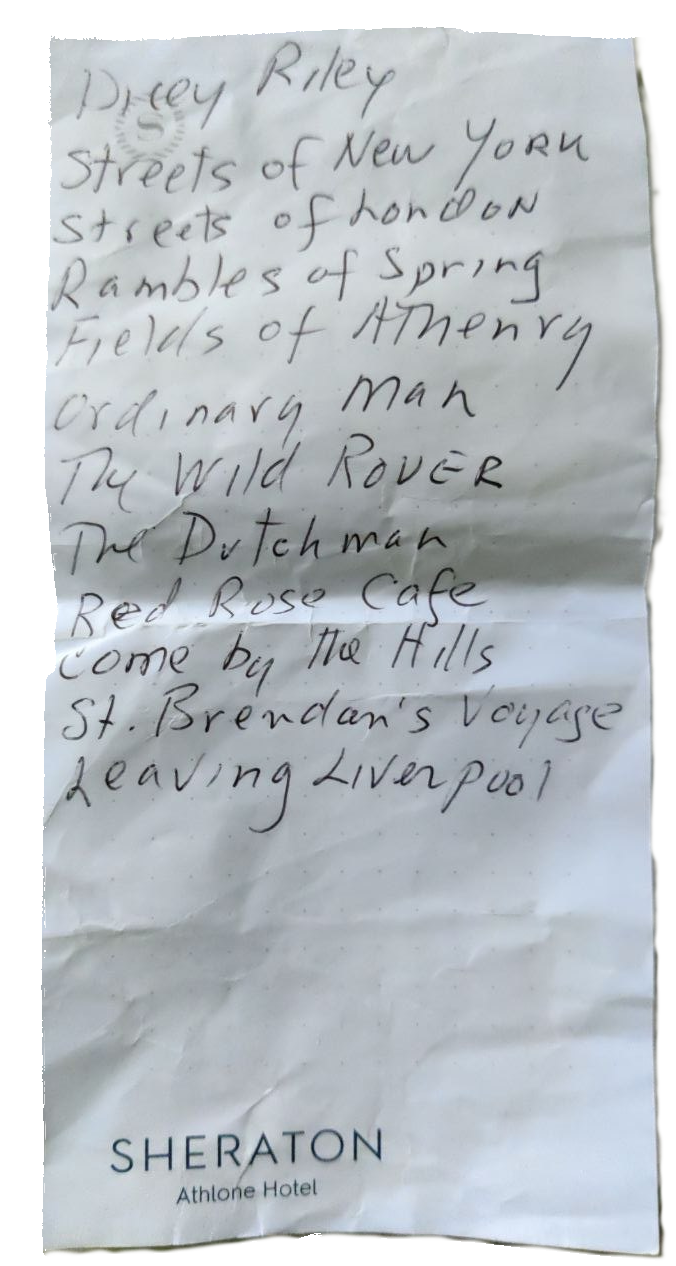 Dicey Riley
S
Streets of New York
Streets of London
Rambles of Spring
Fields of Athenry
Ordinary Man
The Wild Rover
The Dutchman
Red Rose Cafe
Come by the Hills
St. Brendan's Voyage
Leaving Liverpool
SHERATON
Athlone Hotel